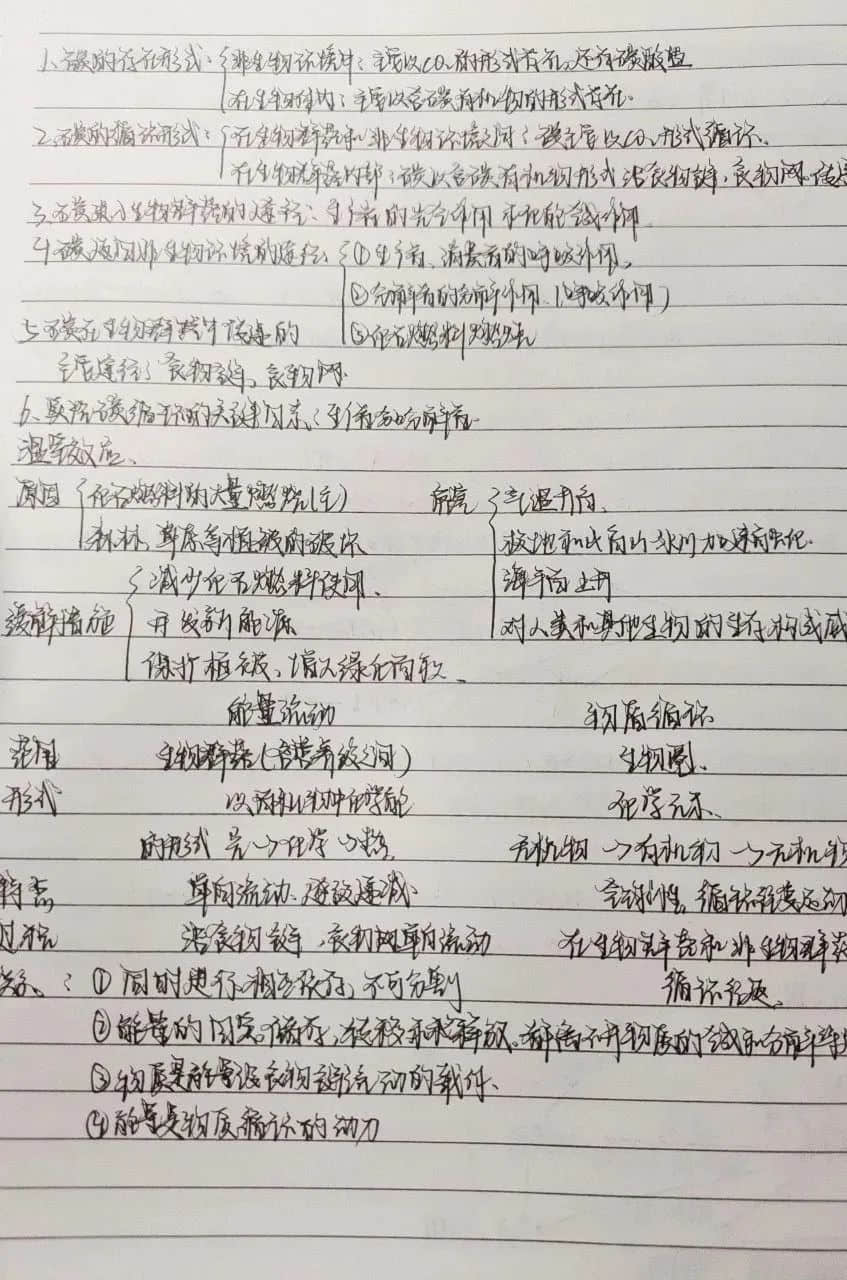 1.碳的存在形式:{非生物环境中:主要以CO₂的形式存在,还有碳酸盐
在生物体内:主要以含碳有机物的形式存在.
2.碳的循环形式:{在生物群落和非生物环境之间:碳主要以CO₂形式循环.
在生物群落内部:碳以含碳有机物形式沿食物链,食物网
3.碳进入生物群落的途径:生产者的光合作用 和化能合成作用
4.碳返回非生物环境的途径:{①生产者、消费者的呼吸作用。
②分解者的分解作用.(呼吸作用)
5.碳在生物群落中传递的 ③化石燃料燃烧
主要途径:食物链,食物网.
6.联结碳循环的关键因素:生产者和分解者
温室效应、
原因{化石燃料的大量燃烧(主) 危害{气温升高.
森林,草原等植被的破坏 极地和高山冰川加速融化.
{减少化石燃料使用、 海平面上升
缓解措施 开发新能源 对人类和其他生物的生存构成威
保护植被,增大绿化面积、
能量流动 物质循环
范围 生物群落(各营养级之间) 生物圈.
形式 以有机物中化学能 化学元素.
的形式 光→化学→热 无机物→有机物→无机物
特点 单向流动、逐级递减. 全球性,循环往复运动
过程 沿食物链,食物网单向流动 在生物群落和非生物群落
关系:①同时进行,相互依存,不可分割 循环往返.
②能量的固定、储存,转移和释放,都离不开物质的合成和分解等
③物质是能量沿食物链流动的载体.
④能量是物质循环的动力